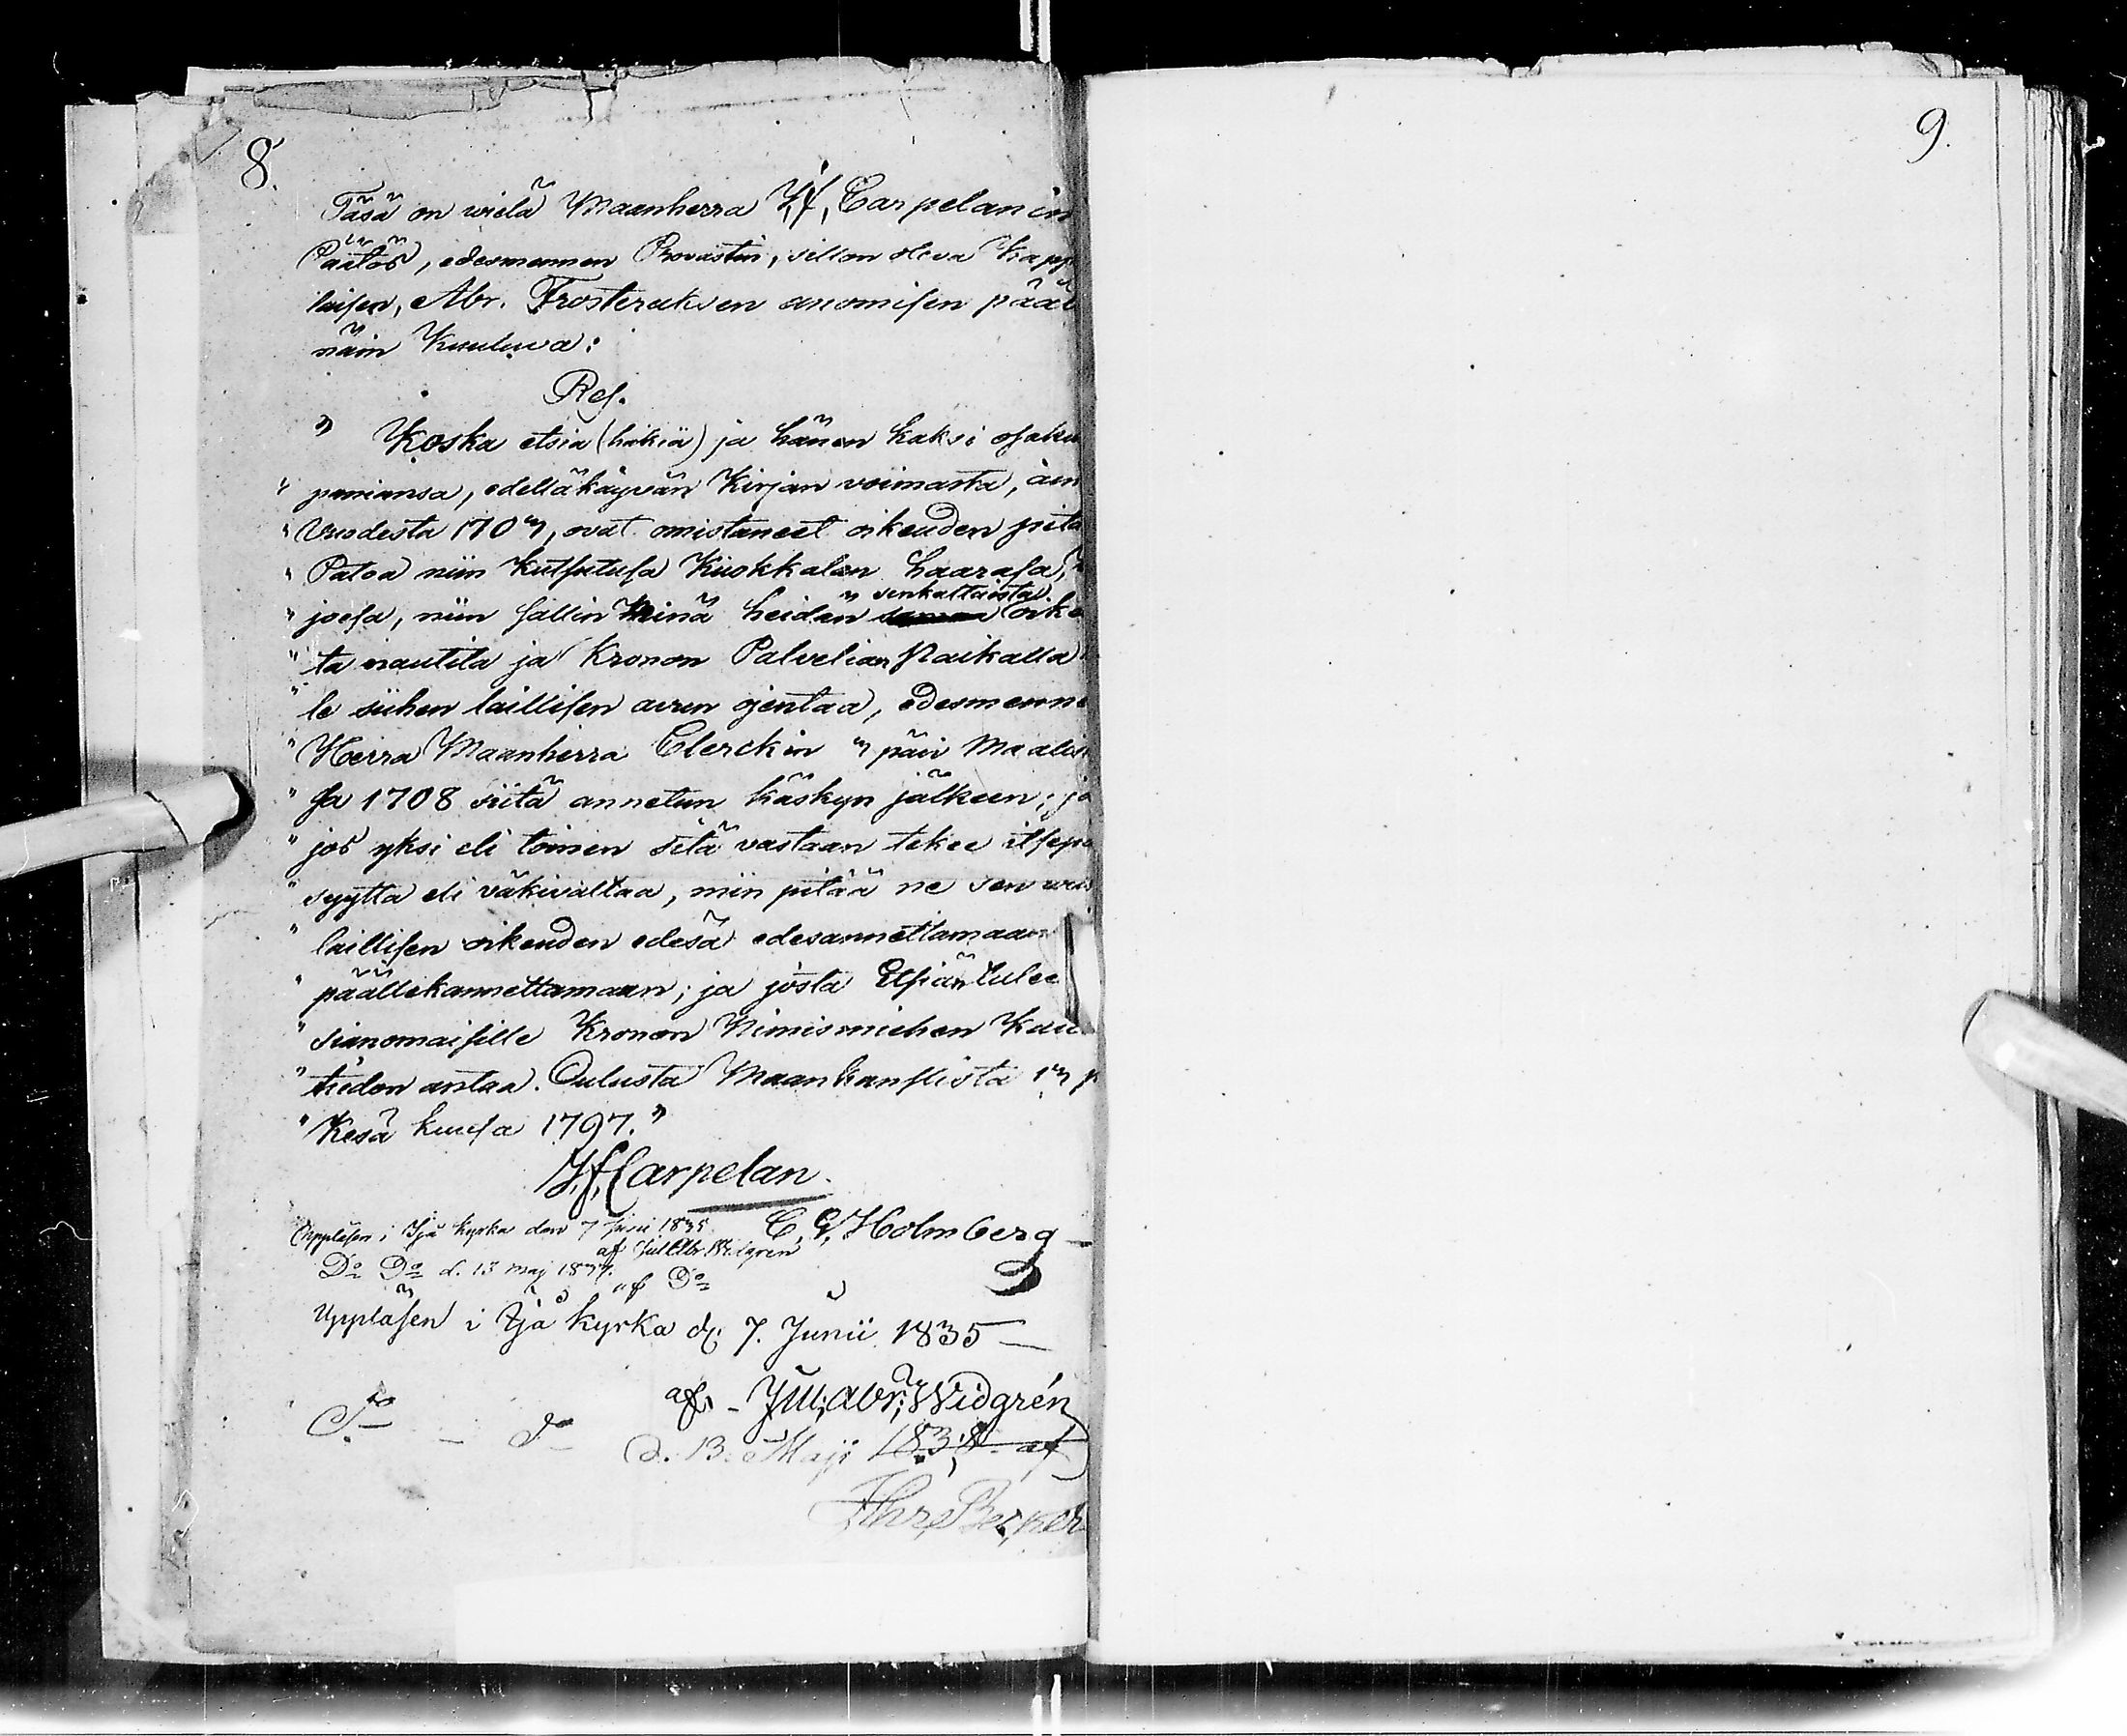 8.
9.
Täsä on wielä Maanherra J, f, Carpelanin
Päätös, edesmennen Provastin, sillon oleva Kapp
laisen, Abr. Frosteruksen anomisen pääl
näin Kuuluwa:
Res.
" Koska etsiä (hakiä) ja hänen kaksi osaku
" paniansa, edelläkäyvän Kirjan voimasta, ain
" Vuodesta 1707, ovat omistaneet oikeuden pitä
" Patoa niin kutsutusa Kuokkalan haarasa,
" senkaltaista
" joesa, niin sallin Minä heidän oike
" ta nautita ja Kronon Palvelian Paikalla
" le siihen laillisen avun ojentaa, edesmenne
" Herra Maanherra Clerckin 7 päiv Maalis
" sa 1708 siitä annetun käskyn jälkeen; ja
" jos yksi eli toinen sitä vastaan tekee itsepä
" syyttä eli väkivaltaa, niin pitää ne sen
" laillisen oikeuden edesä edesannettamaan
" päällekannettamaan; ja josta Etsiän tulee
" sianomaisille Kronon Nimismiehen Kau
" tiedon antaa. Oulusta Maankanslista 17 p
" Kesä kuusa 1797."
J, f, Carpelan.
Uppläsen i Ijå kyrka den 7 Junii 1835 C, G, Holmberg
af Jul Abr Widgren
Do Do d. 13 maj 1837.
af Do
Uppläsen i Ijå kyrka d: 7. Junii 1835 —
af - Jul; Abr; Widgrén
do - do d. 13. Maji 1838 af